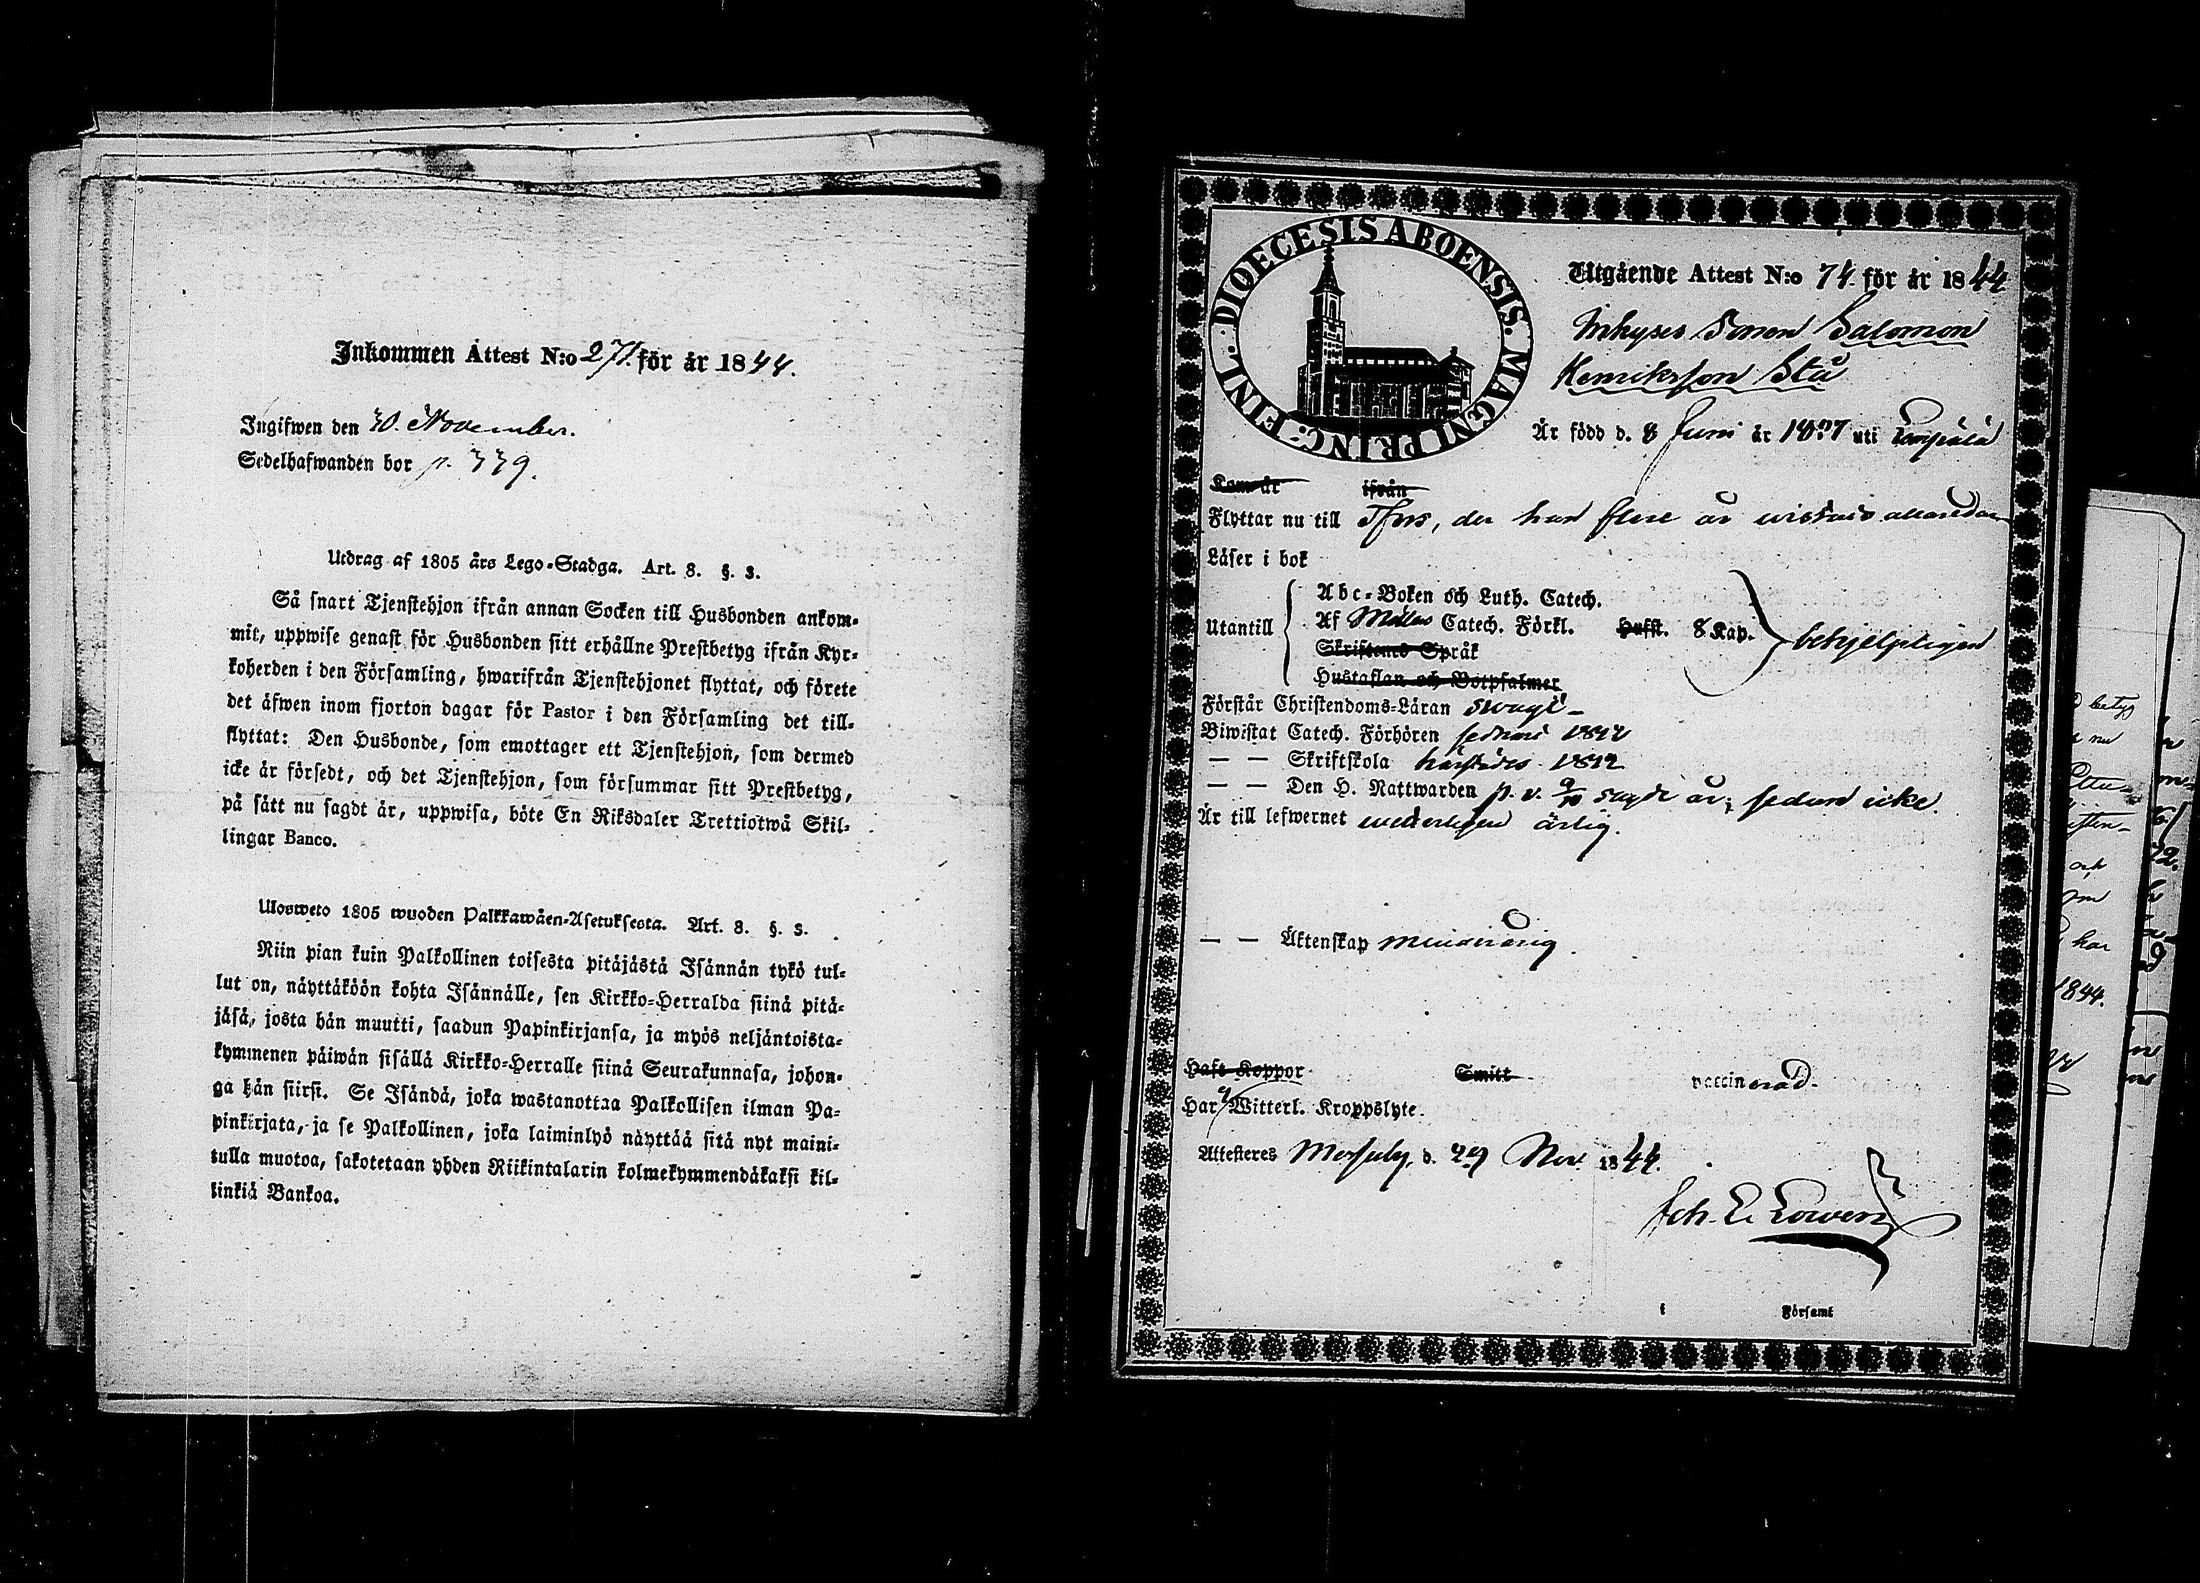 Inkommen Attest N:o 271. för år 1844.
Ingifwen den 30. November.
Sedelhafwanden bor p. 339.
Utdrag af 1805 års Lego-Stadga. Art. 8. §. 3.
Så snart Tjenstehjon ifrån annan Socken till Husbonden ankom-
mit, uppwise genast för Husbonden sitt erhållne Prestbetyg ifrån Kyr-
koherden i den Församling, hwarifrån Tjenstehjonet flyttat, och förete
det äfwen inom fjorton dagar för Pastor i den Församling det till-
flyttat: Den Husbonde, som emottager ett Tjenstehjon, som dermed
icke är försedt, och det Tjenstehjon, som försummar sitt Prestbetyg,
på sätt nu sagdt är, uppwisa, böte En Riksdaler Trettiotwå Skil-
lingar Banco.
Ulosweto 1805 wuoden Palkkawäen-Asetuksesta. Art. 8. §. 3.
Niin pian kuin Palkollinen toisesta pitäjästä Isännän tykö tul-
lut on, näyttäköön kohta Isännälle, sen Kirkko-Herralda siinä pitä-
jäsä, josta hän muutti, saadun Papinkirjansa, ja myös neljäntoista-
kymmenen päiwän sisällä Kirkko-Herralle siinä Seurakunnasa, johon-
ga hän siirsi. Se Isändä, joka wastanottaa Palkollisen ilman Pa-
pinkirjata, ja se Palkollinen, joka laiminlyö näyttää sitä nyt maini-
tulla muotoa, sakotetaan yhden Riikintalarin kolmekymmendäkaksi kil-
linkiä Bankoa.
DIOECESIS ABOENSIS. MAGNI PRINC: FINL.
Utgående Attest N:o 74 för år 1844
Inhyses Sonen Salomon
Henriksson Stå
Är född d. 8 Juni år 1827 uti Lempälä
Kom år ifrån
Flyttar nu till Tfors, der han flere år wistats allaredan
Läser i bok
Utantill
Abc-Boken och Luth. Catech.
Af Möllers Catech. Förkl. Husst. 8 Kap. behjelpligen
Skriftenes Språk
Hustaflan och Botpsalmer
Förstår Christendoms-Läran swagt
Biwistat Catech. Förhören sednast 1842
— — Skriftskola härstädes 1842
— — Den H. Nattwarden p. v. 9/10 sagde år, sedan icke.
Är till lefwernet wetterligen ärlig.
— — Äktenskap minderårig.
Haft Koppor Smitt vaccinerad.
Har Witterl. Kroppslyte.
Attesteres Messuby, d. 29 Nov. 1844.
i Församl
betyg
nu
och
har
1844.